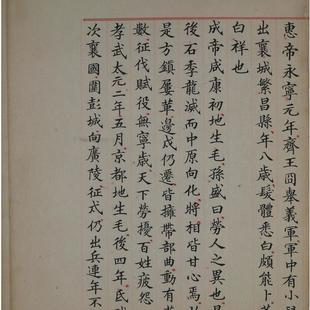 惠帝永寧元年齊王冏舉義軍軍中有小
出襄城繁昌縣年八歲髮體悉白頗能卜
白祥也
成帝咸康初地生毛孫盛曰勞人之異也
後石季龍滅而中原向化將相皆甘心焉
是方鎮屢革邊戍仍遷皆擁帶部曲動有
數征伐賦役無寧歲天下勞擾百姓疲怨
孝武太元二年五月京都地生毛後四年氐
次襄國圍彭城向廣陵征戍仍出兵連年不